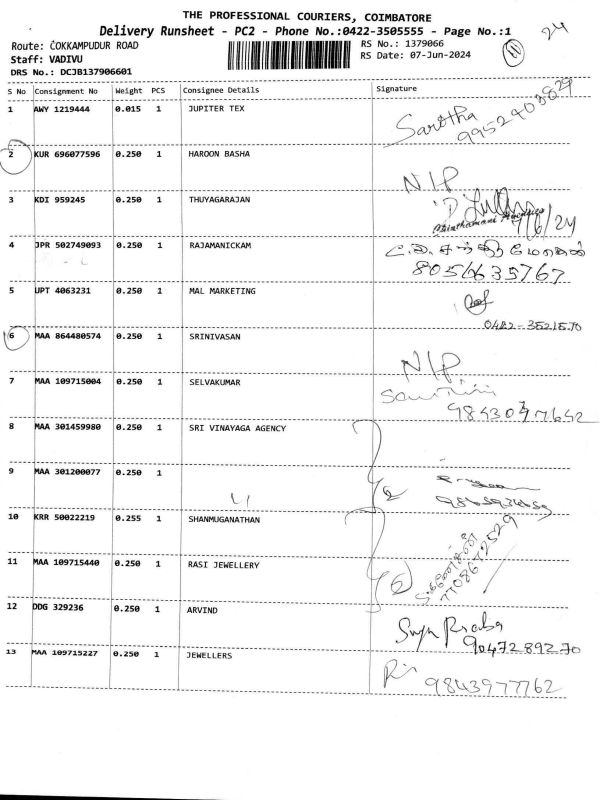 THE PROFESSIONAL COURIERS, COIMBATORE
Delivery Runsheet - PC2 - Phone No.:0422-3505555 - Page No.:1
24
Route: COKKAMPUDUR ROAD
RS No.: 1379066
Staff: VADIVU
RS Date: 07-Jun-2024
DRS No.: DCJB137906601
S No Consignment No Weight PCS Consignee Details Signature
1 AWY 1219444 0.015 1 JUPITER TEX Sarotha
9952403829
2 KUR 696077596 0.250 1 HAROON BASHA N/P
3 KDI 959245 0.250 1 THUYAGARAJAN
7/6/24
4 JPR 502749093 0.250 1 RAJAMANICKAM
8056635767
5 UPT 4063231 0.250 1 MAL MARKETING
0422-3521570
6 MAA 864480574 0.250 1 SRINIVASAN N/P
7 MAA 109715004 0.250 1 SELVAKUMAR
9843047642
8 MAA 301459980 0.250 1 SRI VINAYAGA AGENCY
9 MAA 301200077 0.250 1
10 KRR 50022219 0.255 1 SHANMUGANATHAN
11 MAA 109715440 0.250 1 RASI JEWELLERY
7708672529
12 DDG 329236 0.250 1 ARVIND Suya Praba
9047289270
13 MAA 109715227 0.250 1 JEWELLERS
9843977762